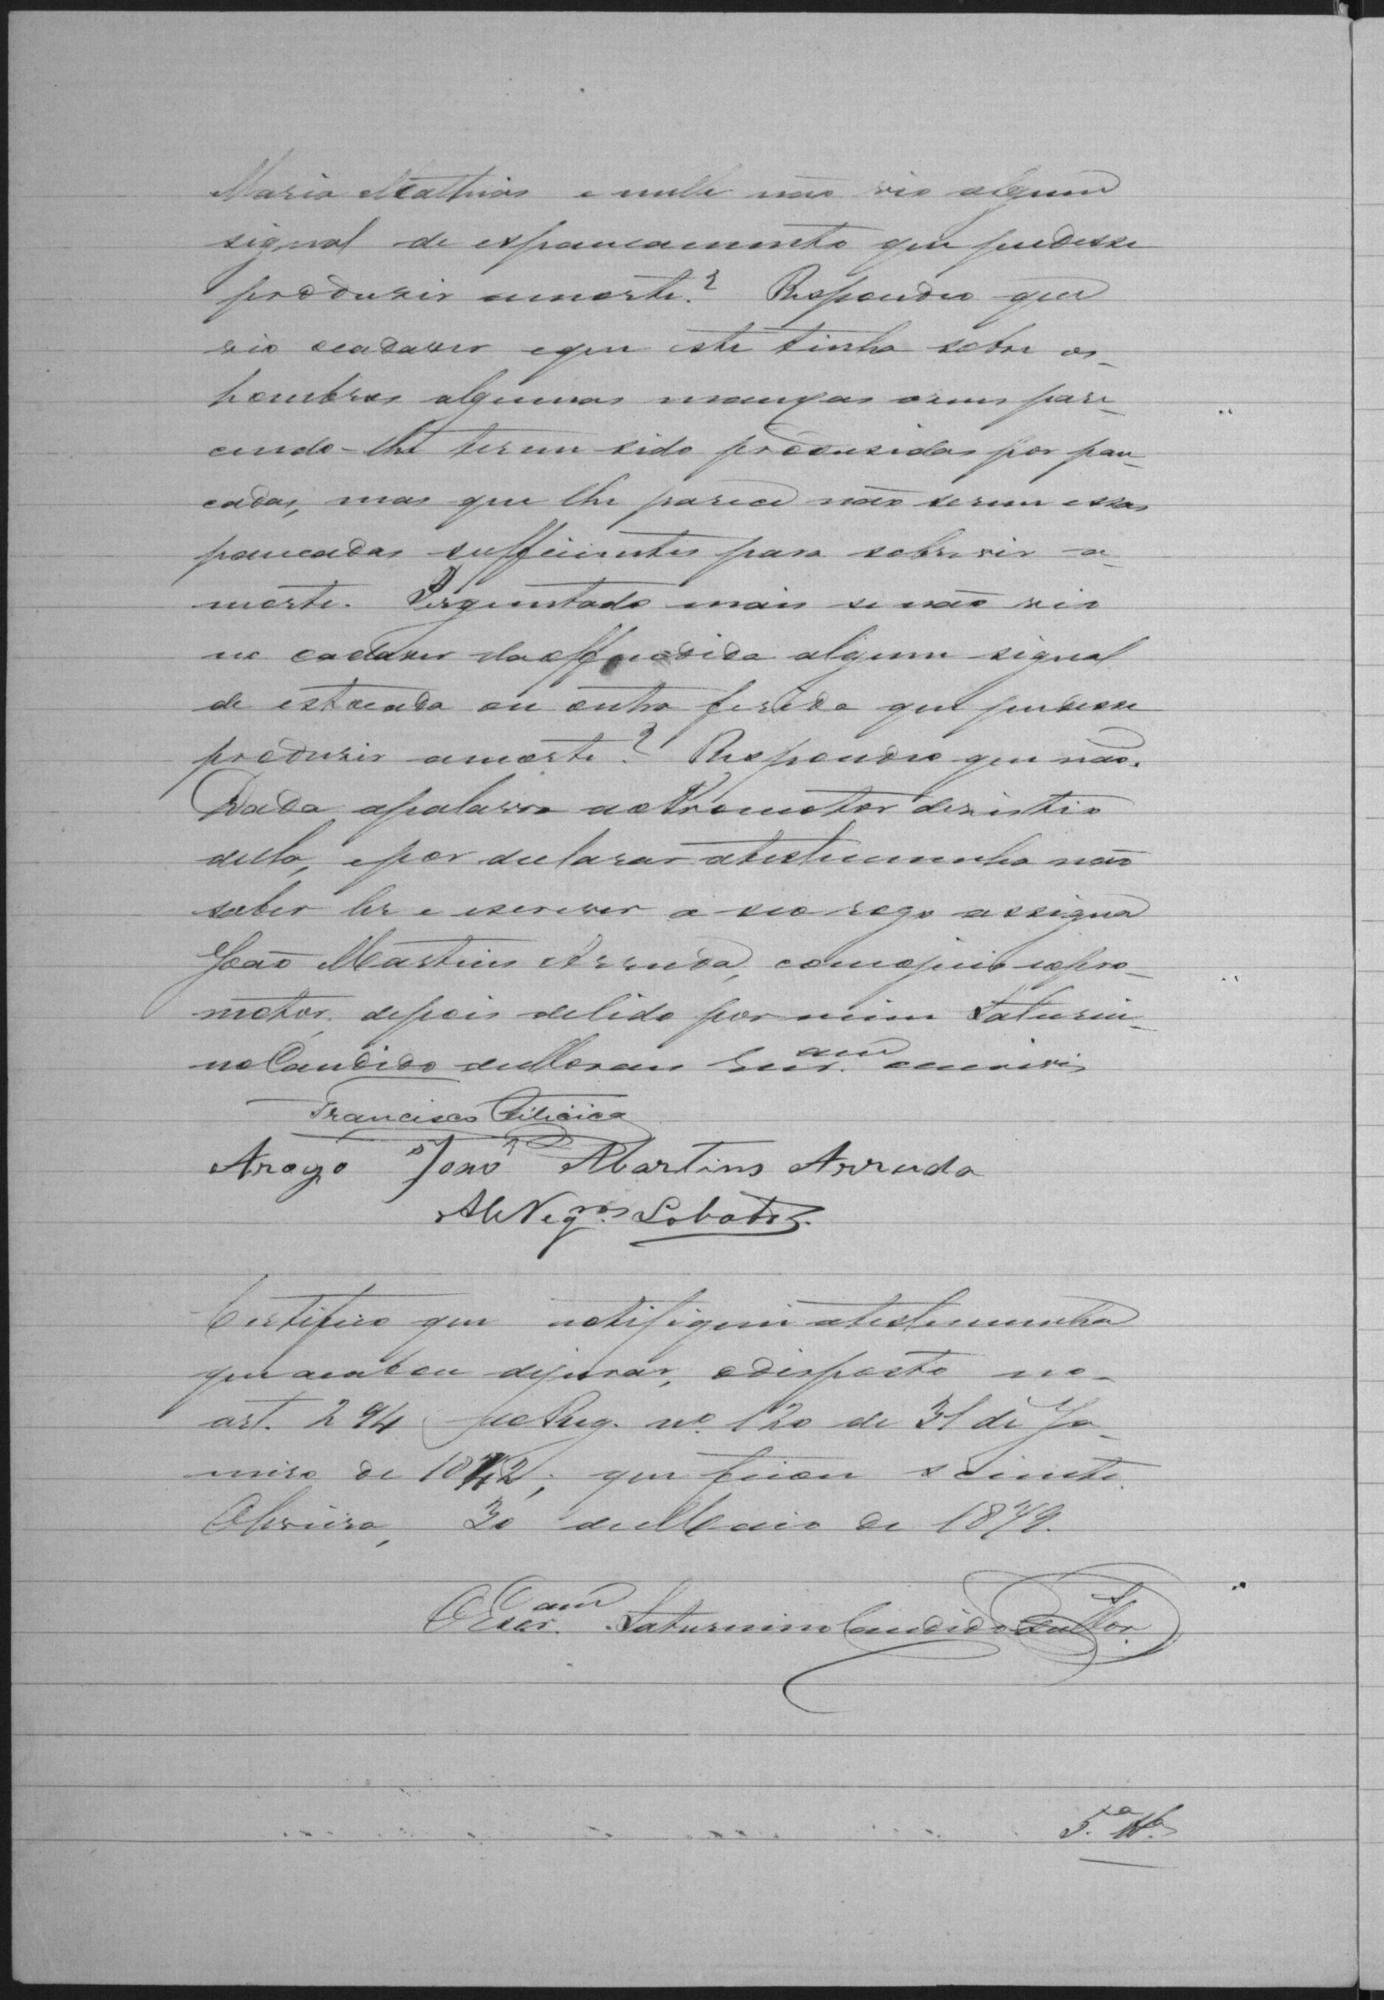 Maria Mathias e nelle não vio algum
signal de espancamento que pudesse
produzir amorte? Respondeo que
vio ocadaver eque este tinha sobre os
hombros algumas manxas pare-
cendo-lhe terem sido produsidas por pan-
cadas, mas que lhe parece não serem essas
pancadas sufficientes para sobrevir a
morte. Perguntado mais se não vio
no cadaver da offendida algum signal
de estocada ou outra ferida que pudesse
produzir amorte? Respondeo que não.
Dada apalavra ao Promotor desistio
della, epor declarar atestemunha não
saber ler e escrever a seo rogo assigna
João Martins Arruda, com ojuis eopro-
motor, depois delido por mim Saturni-
no Candido de Moraes Escr.am oescrevi
Francisco
Arogo João Martins Arruda
Lobato
Certifico que notifiquei atestemunha
que acabou dejurar, odisposto no
art. 294 do Reg. nº 120 de 31 de Ja-
neiro de 1842; que ficou sciente.
Oliveira, 30 de Maio de 1879.
OEscr.am Saturnino Candido de Mor.
5.ª